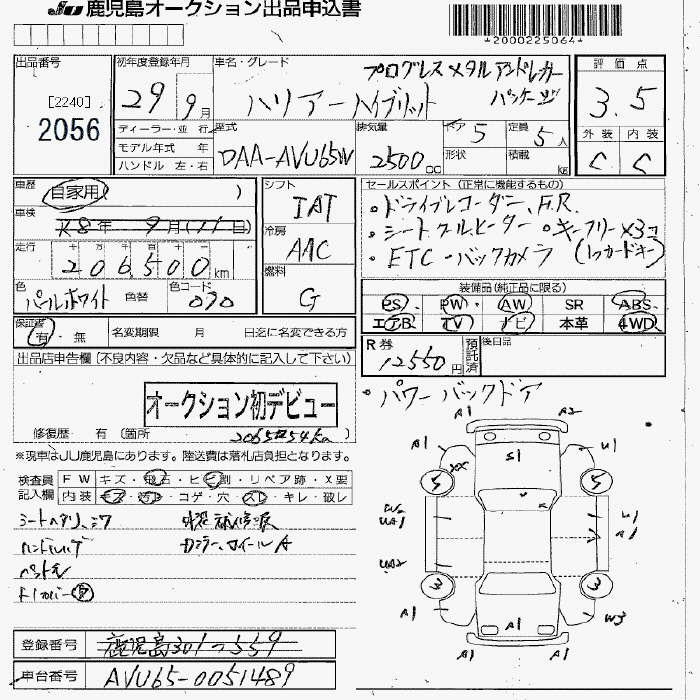 JU 鹿児島オークション出品申込書
*2000225064*
出品番号
[2240]
2056
初年度登録年月
29 9月
車名・グレード
プログレス メタル アンド レザー
パッケージ
ハリアーハイブリット
評価点
3.5
外装 内装
C C
ディーラー・並行
モデル年式 年
ハンドル 左・右
型式
DAA-AVU65W
排気量
2500cc
ドア 5
形状
定員 5人
積載 kg
車歴
自家用( )
車検
R8年 9月(11日)
走行
十 万 千 百 十 一
206,500km
色
パールホワイト
色替
色コード
070
シフト
IAT
冷房
AAC
燃料
G
セールスポイント (正常に機能するもの)
・ドライブレコーダー、F.R.
・シートクールヒーター ・キーフリー×3コ
・ETC ・バックカメラ (1つカードキー)
装備品(純正品に限る)
PS PW AW SR ABS
エアB TV ナビ 本革 4WD
保証書
有・無
名変期限 月 日迄に名変できる方
R券
12550円
預託済
後日品
出品店申告欄(不良内容・欠品など具体的に記入して下さい)
・パワーバックドア
オークション初デビュー
修復歴 有 (箇所
※現車はJU鹿児島にあります。陸送費は落札店負担となります。
検査員
記入欄
FW キズ・飛石・ヒビ割・リペア跡・X要
内装 キズ・汚れ・コゲ・穴・スレ・キレ・破レ
A1 A2
A1 S1 U1
XX
5 5
UA1 U1
A1
UA2
3 3
A1 A1 W3
A1 A1
登録番号 鹿児島301 559
車台番号 AVU65-0051489